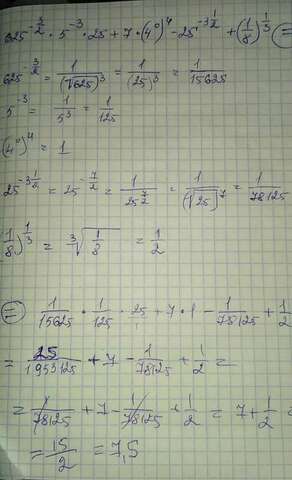 625^{-\frac{3}{2}} · 5^{-3} · 25 + 7 · (4^0)^4 - 25^{-3\frac{1}{2}} + (\frac{1}{8})^{\frac{1}{3}} =
625^{-\frac{3}{2}} = \frac{1}{(\sqrt{625})^3} = \frac{1}{(25)^3} = \frac{1}{15625}
5^{-3} = \frac{1}{5^3} = \frac{1}{125}
(4^0)^4 = 1
25^{-3\frac{1}{2}} = 25^{-\frac{7}{2}} = \frac{1}{25^{\frac{7}{2}}} = \frac{1}{(\sqrt{25})^7} = \frac{1}{78125}
(\frac{1}{8})^{\frac{1}{3}} = \sqrt[3]{\frac{1}{8}} = \frac{1}{2}
= \frac{1}{15625} · \frac{1}{125} · 25 + 7 · 1 - \frac{1}{78125} + \frac{1}{2}
= \frac{25}{1953125} + 7 - \frac{1}{78125} + \frac{1}{2} =
= \frac{1}{78125} + 7 - \frac{1}{78125} + \frac{1}{2} = 7 + \frac{1}{2} =
= \frac{15}{2} = 7,5